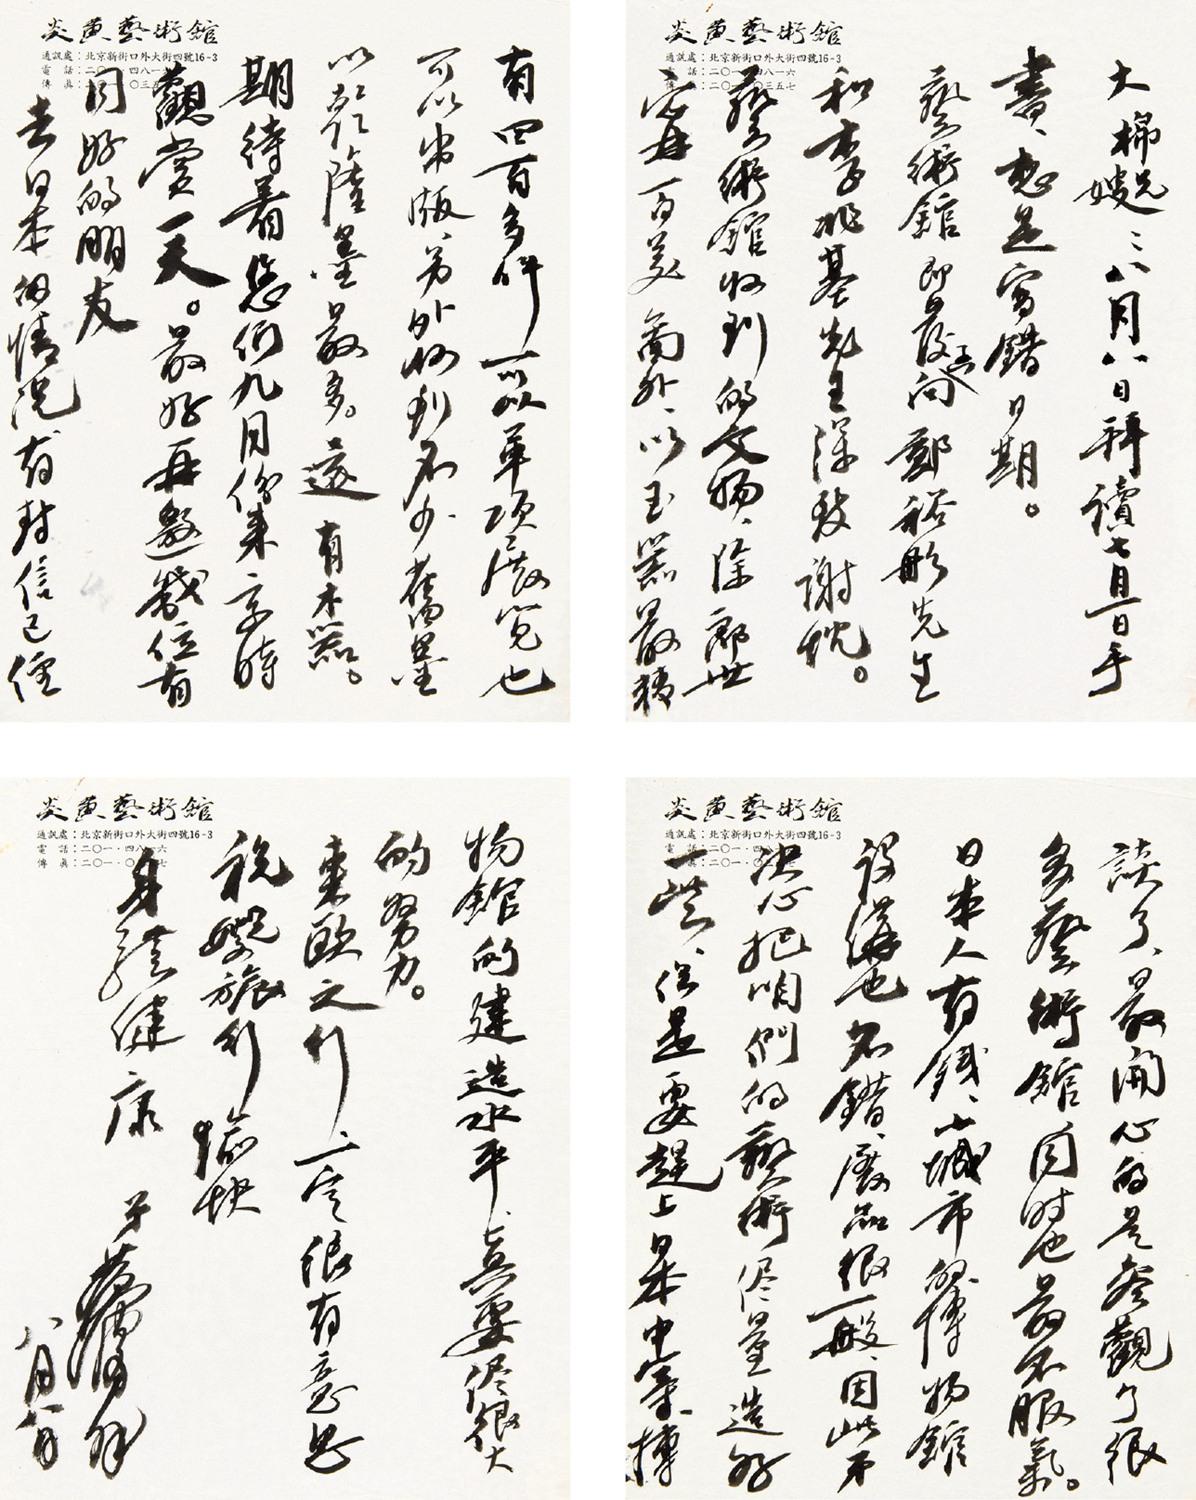 炎黄藝術館
通訊處：北京新街口外大街四號16-3
電　話：二〇一·四八一六
傳　真：二〇一·〇三五七
大棉兄嫂：八月八日拜讀七月一日手
書、想是写錯日期。
藝術館即向鄭裕彤先生
和李兆基先生深致謝忱。
藝術館收到的文物、除郎世
寧百美圖外、以玉器最精
炎黄藝術館
通訊處：北京新街口外大街四號16-3
電　話：二〇一·四八一
傳　真：〇三五
有四百多件可以單項展覽也
可以出版、另外收到不少舊墨
以乾隆墨最多。還有木器。
期待着您们九月份来京時
觀赏一天。最好再邀幾位有
同好的朋友
去日本的情况有封信已經
炎黄藝術館
通訊處：北京新街口外大街四號16-3
電　話：二〇一·四
傳　真：二〇一·〇
談了、最開心的是参觀了很
多藝術館同时也最不服氣。
日本人有錢、小城市的博物館
设備也不錯、展品很一般、因此弟
决心把咱們的藝術尽量造好
一些、但是要趕上日本中等博
炎黄藝術館
通訊處：北京新街口外大街四號16-3
電　話：二〇一·四八一六
傳　真：二〇一·〇七
物館的建造水平、真要尽很大
的努力。
東欧之行一定很有意思
祝兄嫂旅行愉快
身體健康
弟黄胄拜
八月八日